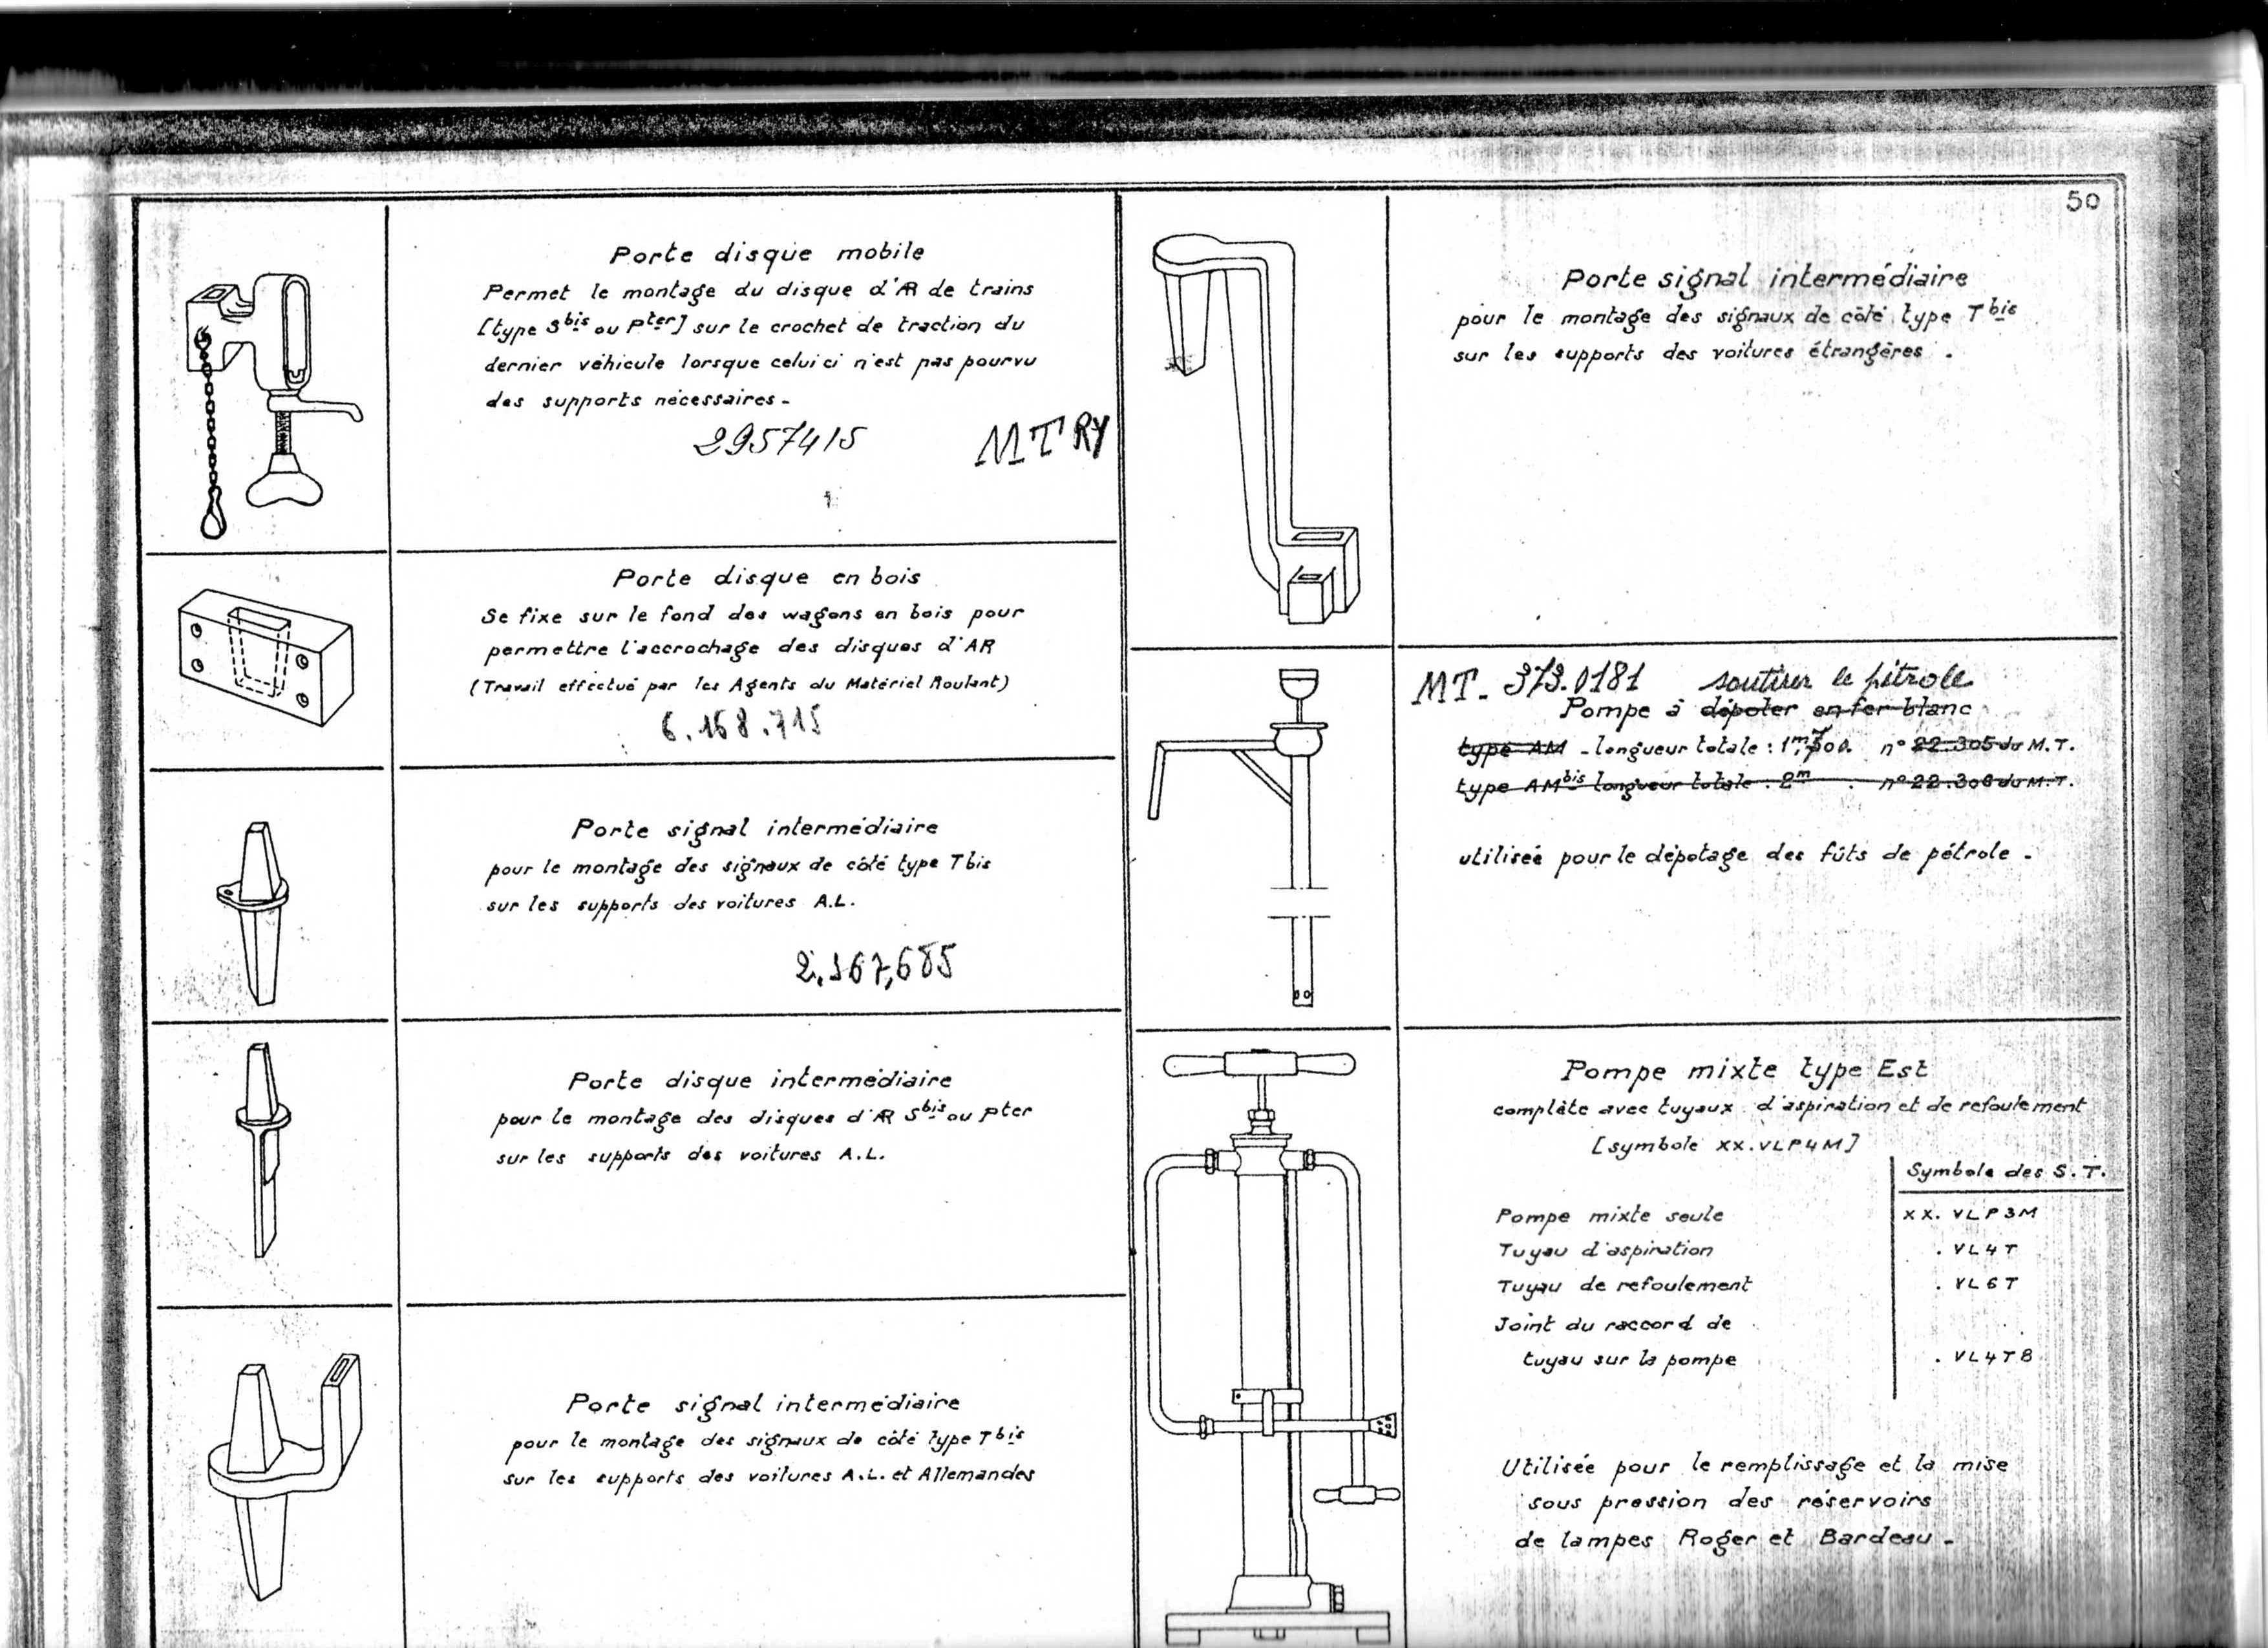 50
Porte disque mobile
Permet le montage du disque d'AR de trains
[type Sbis ou Pter] sur le crochet de traction du
dernier véhicule lorsque celui ci n'est pas pourvu
des supports nécessaires -
2957415 MT RY
Porte disque en bois
Se fixe sur le fond des wagons en bois pour
permettre l'accrochage des disques d'AR
(Travail effectué par les Agents du Matériel Roulant)
6.168.715
Porte signal intermédiaire
pour le montage des signaux de côté type T bis
sur les supports des voitures A.L.
2.167,685
Porte disque intermédiaire
pour le montage des disques d'AR Sbis ou Pter
sur les supports des voitures A.L.
Porte signal intermédiaire
pour le montage des signaux de côté type Tbis
sur les supports des voitures A.L. et Allemandes
Porte signal intermédiaire
pour le montage des signaux de côté type Tbis
sur les supports des voitures étrangères.
MT. 373.0181 soutirer le pétrole
Pompe à dépoter en fer blanc
type AM - longueur totale : 1m,700. n° 22.305 du M.T.
type AMbis longueur totale : 2m . n° 22.306 du M.T.
utilisée pour le dépotage des fûts de pétrole -
Pompe mixte type Est
complète avec tuyaux d'aspiration et de refoulement
[symbole XX.VLP4M]
Symbole des S.T.
Pompe mixte seule XX. VLP3M
Tuyau d'aspiration . VL4T
Tuyau de refoulement . VL6T
Joint du raccord de
tuyau sur la pompe . VL4T8
Utilisée pour le remplissage et la mise
sous pression des réservoirs
de lampes Roger et Bardeau -